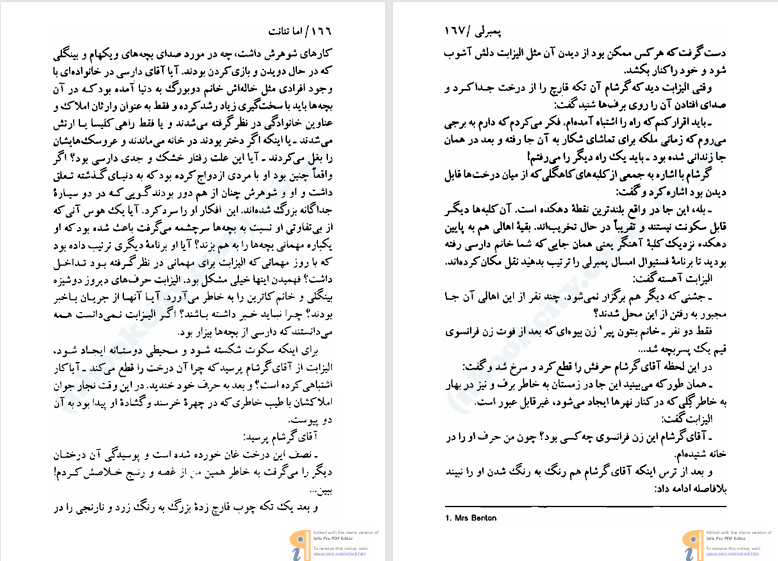 ۱۶۶/ اما تنانت
کارهای شوهرش داشت، چه در مورد صدای بچه‌های ویکهام و بینگلی
که در حال دویدن و بازی کردن بودند. آیا آقای دارسی در خانواده‌ای با
وجود افرادی مثل خاله‌اش خانم دوبورگ به دنیا آمده بود که در آن
بچه‌ها باید با سخت‌گیری زیاد رشد کرده و فقط به عنوان وارثان املاک و
عناوین خانوادگی در نظر گرفته می‌شدند و یا فقط راهی کلیسا یا ارتش
می‌شدند ـ یا اینکه اگر دختر بودند در خانه می‌ماندند و عروسک‌هایشان
را بغل می‌کردند ـ آیا این علت رفتار خشک و جدی دارسی بود؟ اگر
واقعاً چنین بود او با مردی ازدواج کرده بود که به دنیای گذشته تعلق
داشت و او و شوهرش چنان از هم دور بودند گویی که در دو سیارهٔ
جداگانه بزرگ شده‌اند. این افکار او را سرد کرد. آیا یک هوس آنی که
از بی‌تفاوتی او نسبت به بچه‌ها سرچشمه می‌گرفت باعث شده بود که او
یکباره مهمانی بچه‌ها را به هم بزند؟ آیا او برنامهٔ دیگری ترتیب داده بود
که با روز مهمانی که الیزابت برای مهمانی در نظر گرفته بود تداخل
داشت؟ فهمیدن اینها خیلی مشکل بود. الیزابت حرف‌های دیروز دوشیزه
بینگلی و خانم کاترین را به خاطر می‌آورد. آیا آنها از جریان باخبر
بودند؟ چرا نباید خبر داشته باشند؟ اگر الیزابت نمی‌دانست همه
می‌دانستند که دارسی از بچه‌ها بیزار بود.
برای اینکه سکوت شکسته شود و محیطی دوستانه ایجاد شود،
الیزابت از آقای گرشام پرسید که چرا آن درخت را قطع می‌کند ـ آیا کار
اشتباهی کرده است؟ و بعد به حرف خود خندید. در این وقت نجار جوان
املاکشان با طیب خاطری که در چهرهٔ خرسند و گشادهٔ او پیدا بود به آن
دو پیوست.
آقای گرشام پرسید:
ـ نصف این درخت غان خورده شده است و پوسیدگی آن درختان
دیگر را می‌گرفت به خاطر همین من از غصه و رنج خلاصش کردم!
ببین...
و بعد یک تکه چوب قارچ زدهٔ بزرگ به رنگ زرد و نارنجی را در
Edited with the demo version of
Infix Pro PDF Editor
To remove this notice, visit:
www.iceni.com/unlock.htm
پمبرلی /۱۶۷
دست گرفت که هر کس ممکن بود از دیدن آن مثل الیزابت دلش آشوب
شود و خود را کنار بکشد.
وقتی الیزابت دید که گرشام آن تکه قارچ را از درخت جدا کرد و
صدای افتادن آن را روی برف‌ها شنید گفت:
ـ باید اقرار کنم که راه را اشتباه آمده‌ام. فکر می‌کردم که دارم به برجی
می‌روم که زمانی ملکه برای تماشای شکار به آن جا رفته و بعد در همان
جا زندانی شده بود ـ باید یک راه دیگر را می‌رفتم!
گرشام با اشاره به جمعی از کلبه‌های کاهگلی که از میان درخت‌ها قابل
دیدن بود اشاره کرد و گفت:
ـ بله، این جا در واقع بلندترین نقطهٔ دهکده است. آن کلبه‌ها دیگر
قابل سکونت نیستند و تقریباً در حال تخریب‌اند. بقیهٔ اهالی هم به پایین
دهکده نزدیک کلبهٔ آهنگر یعنی همان جایی که شما خانم دارسی رفته
بودید تا برنامهٔ فستیوال امسال پمبرلی را ترتیب بدهید نقل مکان کرده‌اند.
الیزابت آهسته گفت:
ـ جشنی که دیگر هم برگزار نمی‌شود. چند نفر از این اهالی آن جا
مجبور به رفتن از این محل شدند؟
فقط دو نفر ـ خانم بنتون پیر۱ زن بیوه‌ای که بعد از فوت زن فرانسوی
قیم یک پسربچه شد...
در این لحظه آقای گرشام حرفش را قطع کرد و سرخ شد و گفت:
ـ همان طور که می‌بینید این جا در زمستان به خاطر برف و نیز در بهار
به خاطر گِلی که در کنار نهرها ایجاد می‌شود، غیرقابل عبور است.
الیزابت گفت:
ـ آقای گرشام این زن فرانسوی چه کسی بود؟ چون من حرف او را در
خانه شنیده‌ام.
و بعد از ترس اینکه آقای گرشام هم رنگ به رنگ شدن او را نبیند
بلافاصله ادامه داد:
1. Mrs Benton
Edited with the demo version of
Infix Pro PDF Editor
To remove this notice, visit:
www.iceni.com/unlock.htm